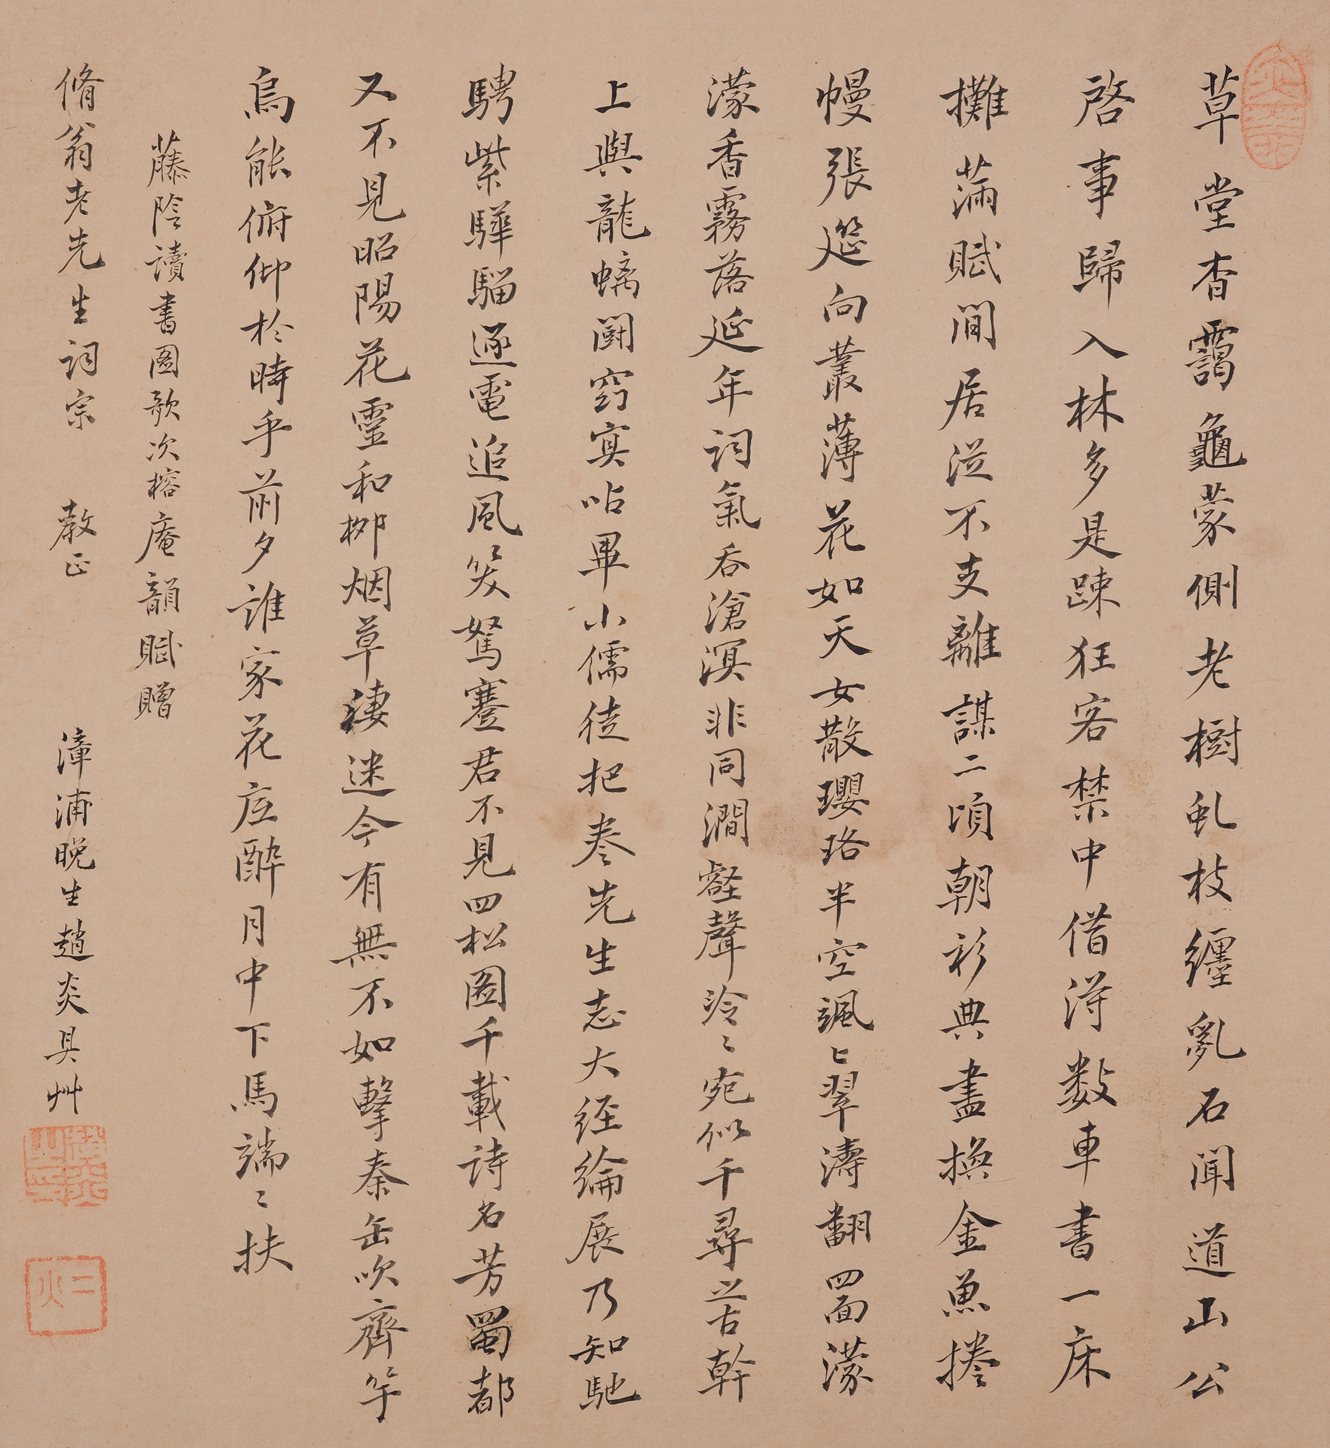 草堂杳靄龜蒙側老樹虬枝纏亂石聞道山公
啓事歸入林多是踈狂客禁中借得数車書一床
攤滿賦閒居従不支離謀二頃朝衫典盡換金魚捲
幔張筵向叢薄花如天女散瓔珞半空颯〻翠濤翻四面濛
濛香霧落延年詞氣吞滄溟非同澗壑聲泠〻宛似千尋苦幹
上與龍螭鬪窈冥呫畢小儒徒把卷先生志大經綸展乃知馳
騁紫驊騮逐電追風笑駑蹇君不見四松圖千載詩名芳蜀都
又不見昭陽花靈和柳烟草淒迷今有無不如擊秦缶吹齊竽
烏能俯仰於時乎前夕誰家花底醉月中下馬端〻扶
藤陰讀書圖歌次榕庵韻賦贈
脩翁老先生詞宗 教正 漳浦晚生趙炎具艸